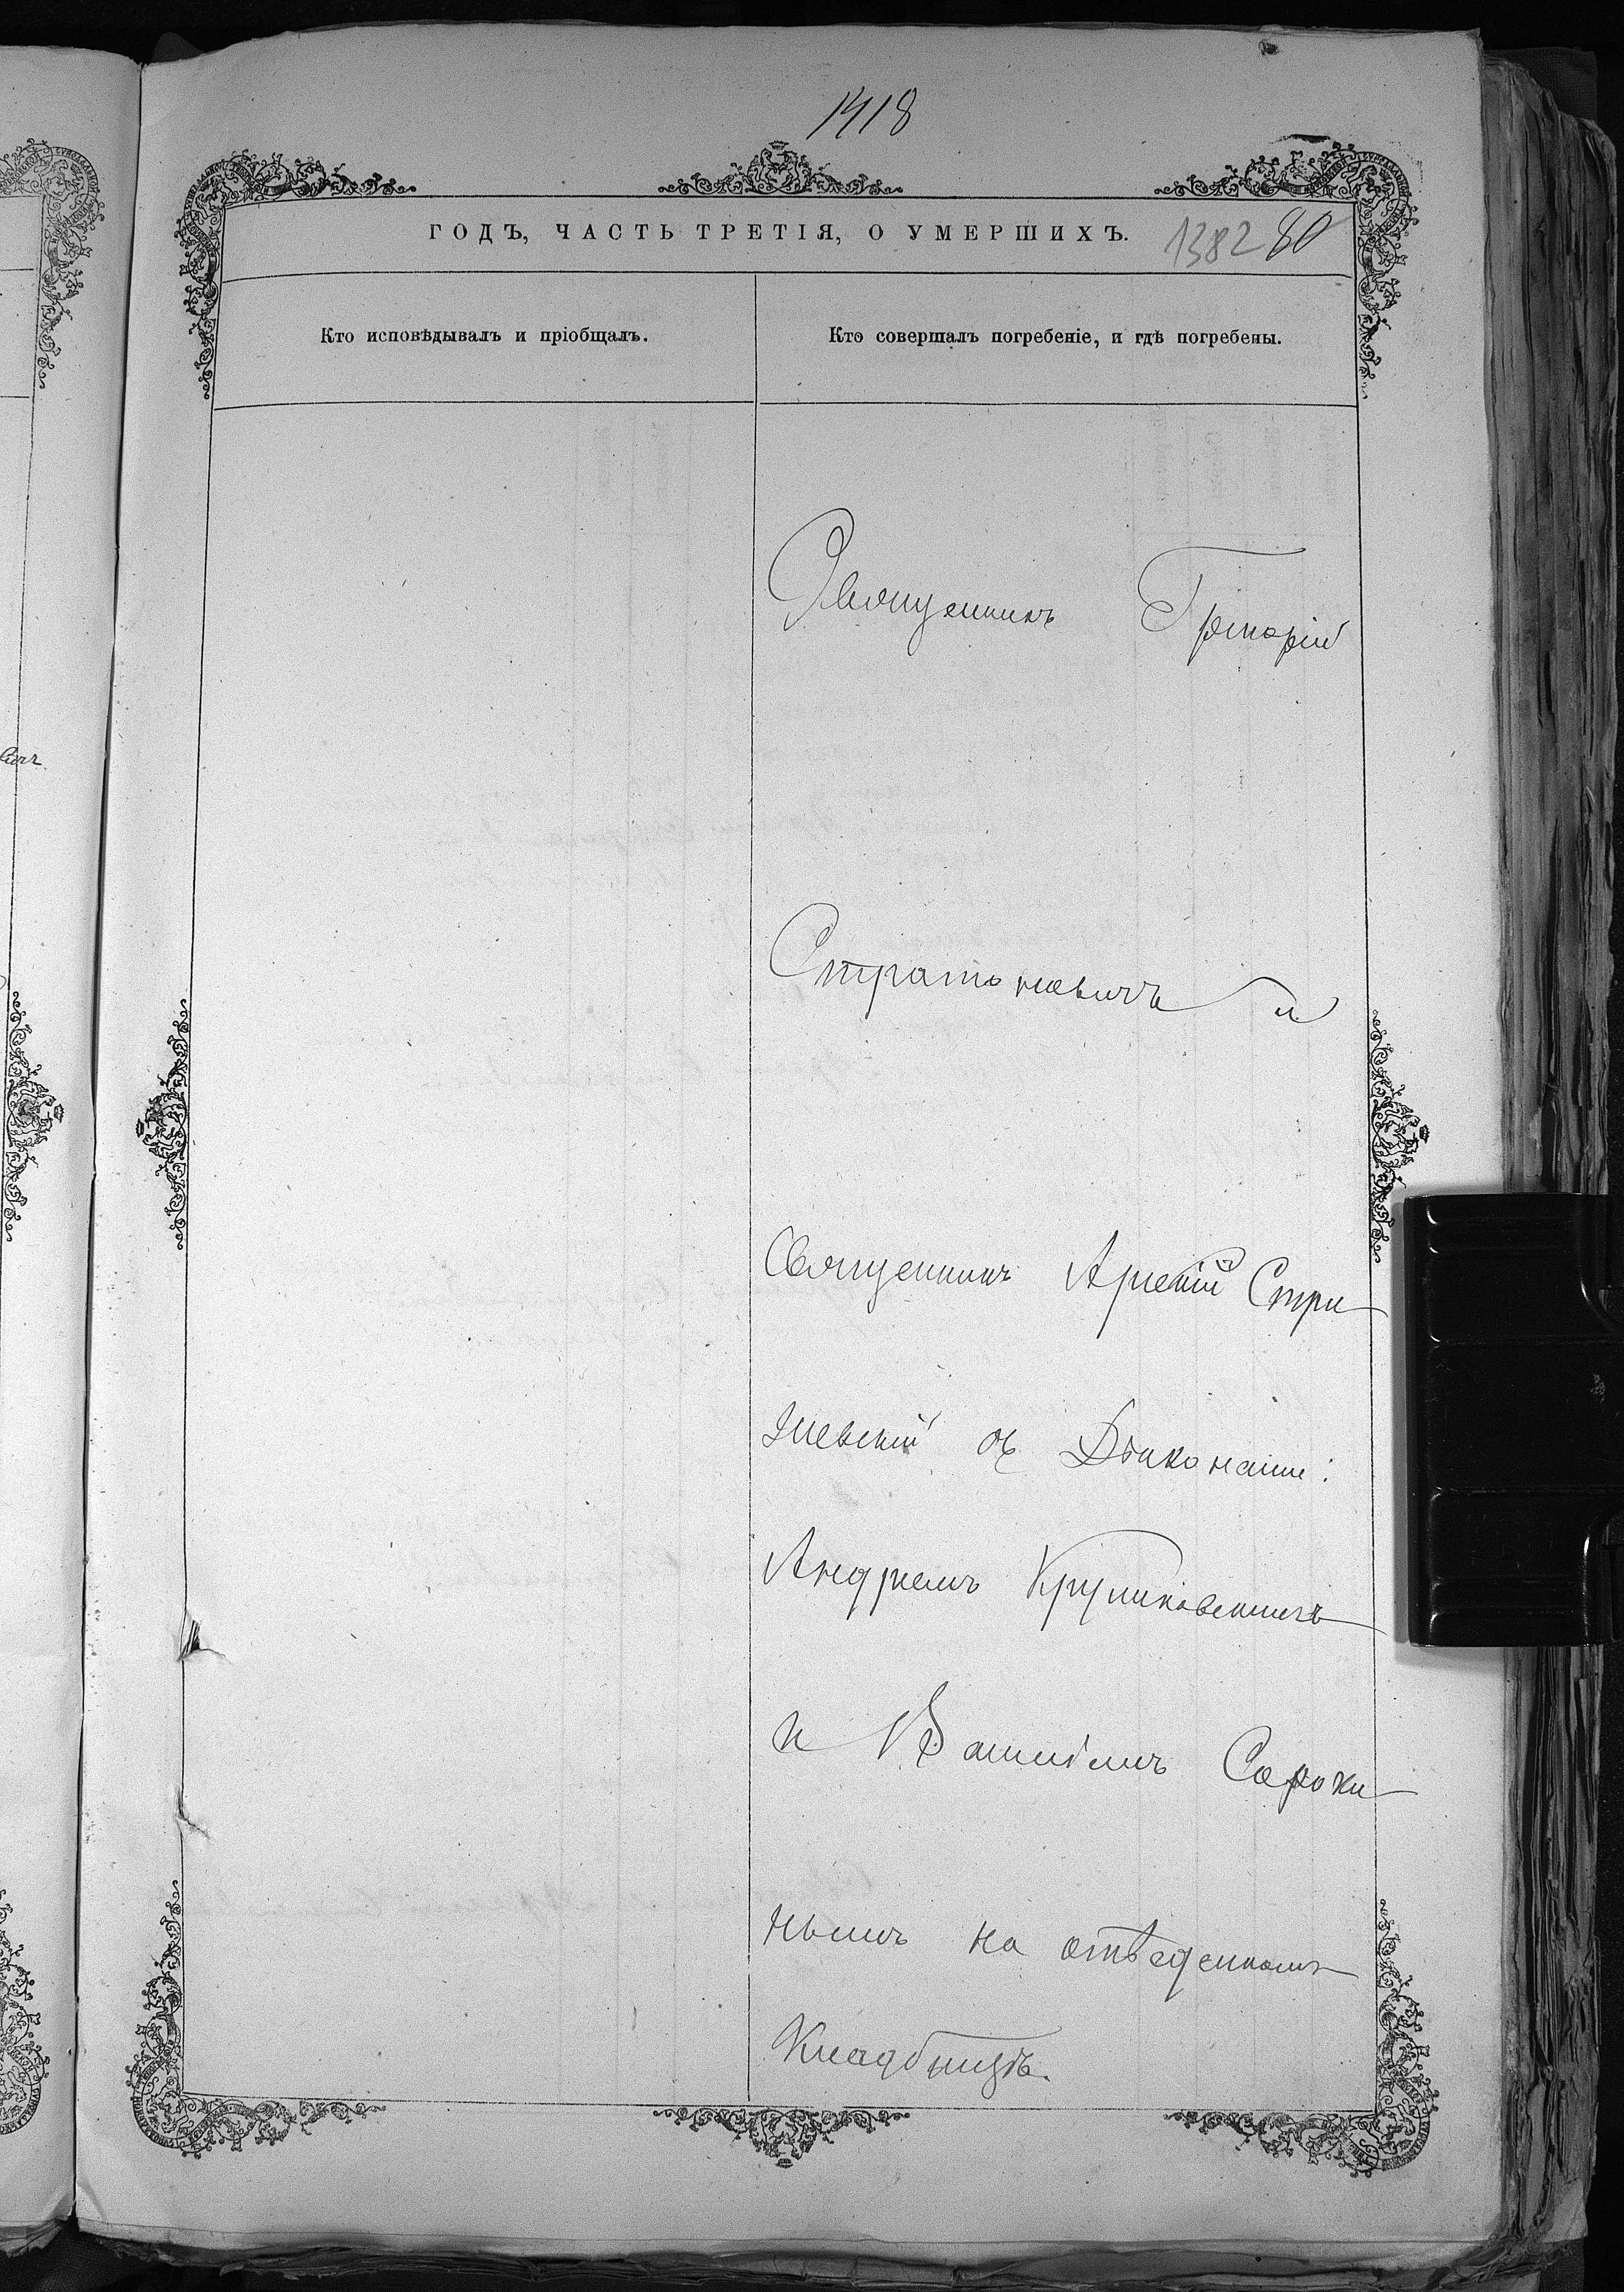 1418
ГОДЪ, ЧАСТЬ ТРЕТІЯ, О УМЕРШИХЪ.
1382 80
Кто исповѣдывалъ и пріобщалъ.
Кто совершалъ погребеніе, и гдѣ погребены.
Священникъ Григорій
Стратоновичъ и
Священникъ Арсеній Стри
жевскій съ Діаконами:
Андреемъ Крупиковскимъ
и Василіемъ Сороки
нымъ на отведенномъ
Кладбищѣ.